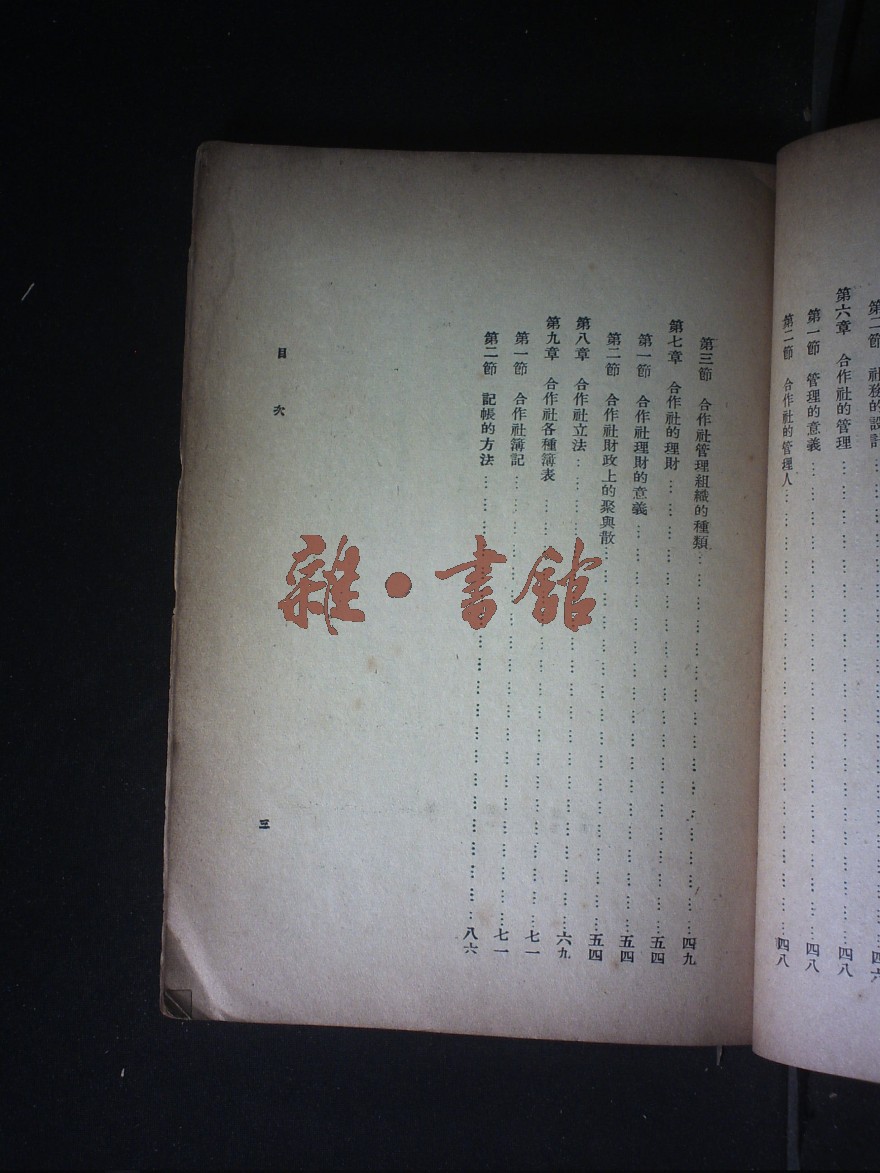 第二節 社務的設計……四六
第六章 合作社的管理……四八
第一節 管理的意義……四八
第二節 合作社的管理人……四八
第三節 合作社管理組織的種類……四九
第七章 合作社的理財……五四
第一節 合作社理財的意義……五四
第二節 合作社財政上的聚與散……五四
第八章 合作社立法……六九
第九章 合作社各種簿表……七一
第一節 合作社簿記……七一
第二節 記帳的方法……八六
目次
三
雜·書館